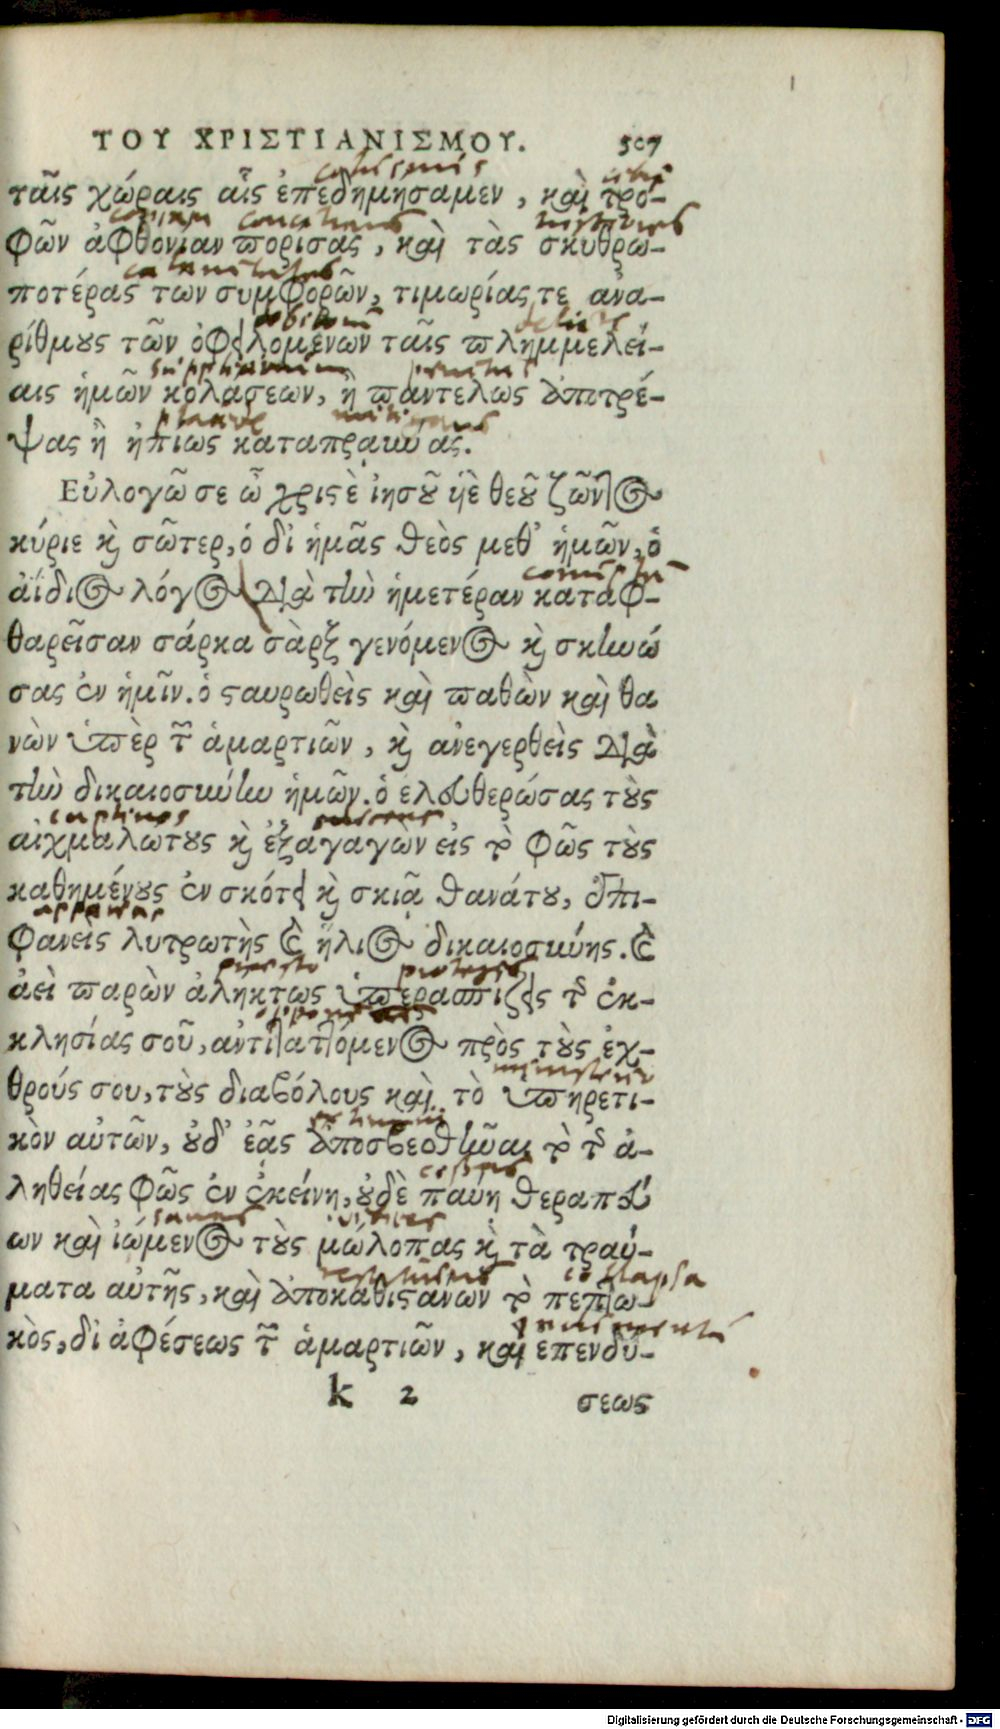 ΤΟΥ ΧΡΙΣΤΙΑΝΙΣΜΟΥ. 507
ταῖς χώραις αἷς ἐπεδημήσαμεν, καὶ τρο-
φῶν ἀφθονίαν πορίσας, καὶ τὰς σκυθρω-
ποτέρας των συμφορῶν, τιμωρίας τε ἀνα-
ρίθμους τῶν ὀφειλομένων ταῖς πλημμελεί-
αις ἡμῶν κολάσεων, ἢ παντελῶς ἀποτρέ-
ψας ἢ ἠπίως καταπραΰνας.
Εὐλογῶ σε ὦ χριστὲ ἰησοῦ υἱὲ θεοῦ ζῶντος
κύριε καὶ σῶτερ, ὁ δι ἡμᾶς θεὸς μεθ' ἡμῶν, ὁ
ἀΐδιος λόγος διὰ τὴν ἡμετέραν καταφ-
coruptā
θαρεῖσαν σάρκα σὰρξ γενόμενος καὶ σκηνώ
σας ἐν ἡμῖν. ὁ σταυρωθεὶς καὶ παθὼν καὶ θα
νὼν ὑπὲρ τῶν ἁμαρτιῶν, καὶ ἀνεγερθεὶς διὰ
τὴν δικαιοσύνην ἡμῶν. ὁ ἐλευθερώσας τοὺς
captiuos
αἰχμαλώτους καὶ ἐξαγαγὼν εἰς τὸ φῶς τοὺς
καθημένους ἐν σκότει καὶ σκιᾷ θανάτου, ἐπι-
φανεὶς λυτρωτὴς καὶ ἥλιος δικαιοσύνης. καὶ
protegis
ἀεὶ παρὼν ἀλήκτως ὑπερασπίζεις τῆς ἐκ-
κλησίας σοῦ, ἀντιταττόμενος πρὸς τοὺς ἐχ-
θρούς σου, τοὺς διαβόλους καὶ τὸ ὑπηρετι-
κὸν αὐτῶν, οὐδ' ἐᾷς ἀποσβεσθῆναι τὸ τῆς ἀ-
ληθείας φῶς ἐν ἐκείνῃ, οὐδὲ παύῃ θεραπεύ
sanans
ων καὶ ἰώμενος τοὺς μώλοπας καὶ τὰ τραύ-
collapsa
ματα αὐτῆς, καὶ ἀποκαθιστάνων τὸ πεπτω-
κὸς, δι ἀφέσεως τῶν ἁμαρτιῶν, καὶ ἐπενδύ-
k 2 σεως
Digitalisierung gefördert durch die Deutsche Forschungsgemeinschaft - DFG